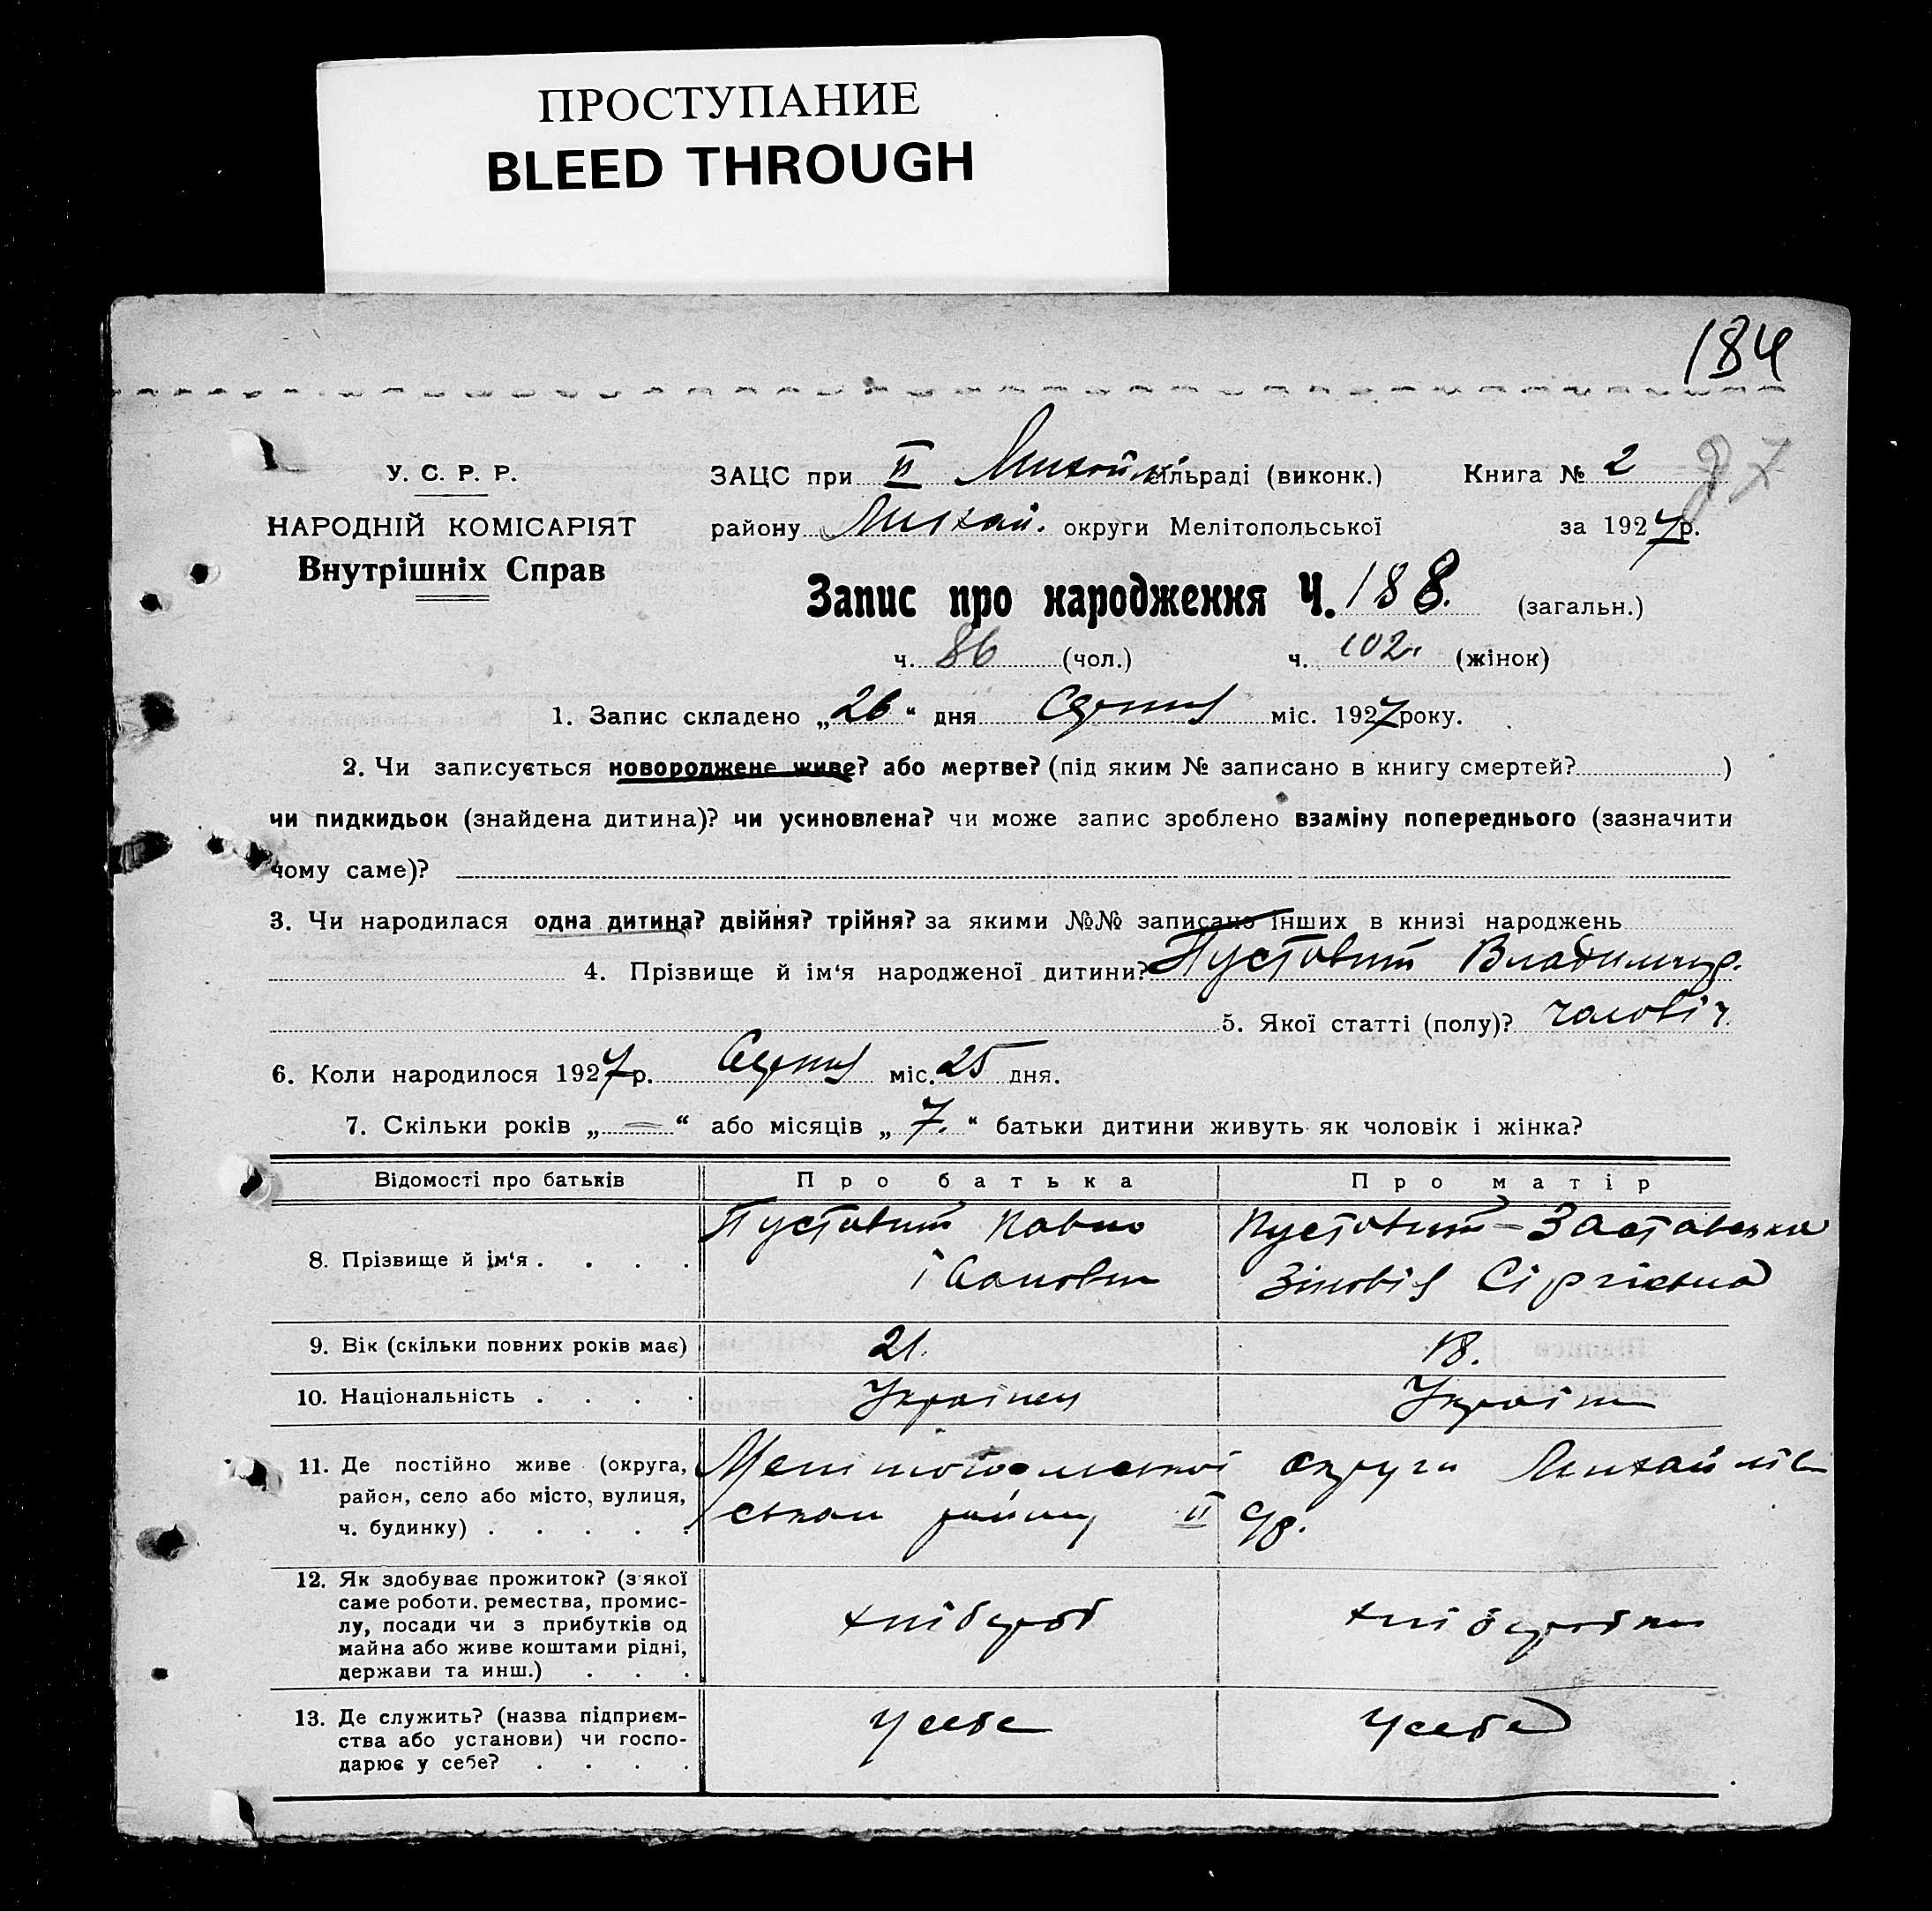 ПРОСТУПАНИЕ
BLEED THROUGH
184
У. С. Р. Р.
НАРОДНІЙ КОМІСАРІЯТ
Внутрішніх Справ
ЗАЦС при II Михайл сільраді (виконк.) Книга № 2
87
району Михай. округи Мелітопольської за 1927 р.
Запис про народження Ч. 188. (загальн.)
ч. 86 (чол.) ч. 102. (жінок)
1. Запис складено „26“ дня Серпня міс. 1927 року.
2. Чи записується новороджене живе? або мертве? (під яким № записано в книгу смертей? )
чи пидкидьок (знайдена дитина)? чи усиновлена? чи може запис зроблено взаміну попереднього (зазначити
чому саме)?
3. Чи народилася одна дитина? двійня? трійня? за якими №№ записано інших в книзі народжень
4. Прізвище й ім‘я народженої дитини? Пустовит Владимир.
5. Якої статті (полу)? чоловіч.
6. Коли народилося 1927 р. Серпня міс. 25 дня.
7. Скільки років „ — “ або місяців „ 7. “ батьки дитини живуть як чоловік і жінка?
Відомості про батьків Про батька Про матір
8. Прізвище й ім‘я . . . . Пустовит Павло Пустовит-Заставська
Іванович Зіновія Сіргієвна
9. Вік (скільки повних років має) 21. 18.
10. Національність . . . . Українец Україн
11. Де постійно живе (округа, Мелітопольської округи Михайлів
район, село або місто, вулиця, ськом району II
ч. будинку) . . . . .
12. Як здобуває прожиток? (з якої
саме роботи, ремества, промис-
лу, посади чи з прибутків од хлібороб хліборобка
майна або живе коштами рідні,
держави та инш.) . . .
13. Де служить? (назва підприєм- у себе у себе
ства або установи) чи госпо-
дарює у себе? . . . .